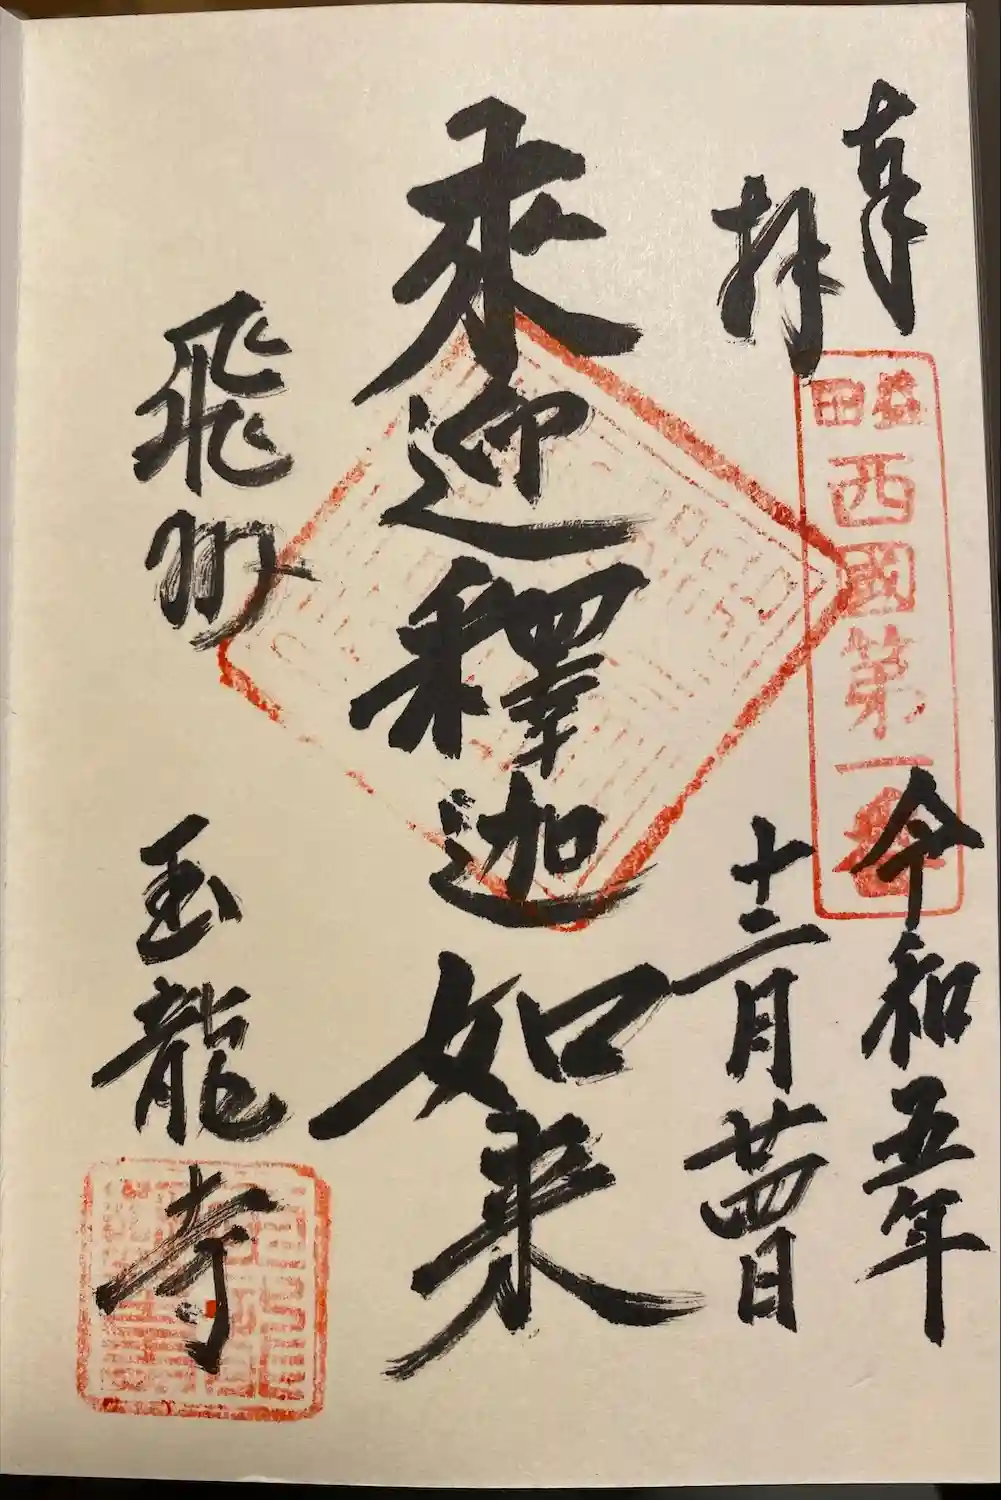 奉拝
益田
西國第一番
令和五年
十二月廿四日
来迎釋迦如来
飛州
玉龍寺